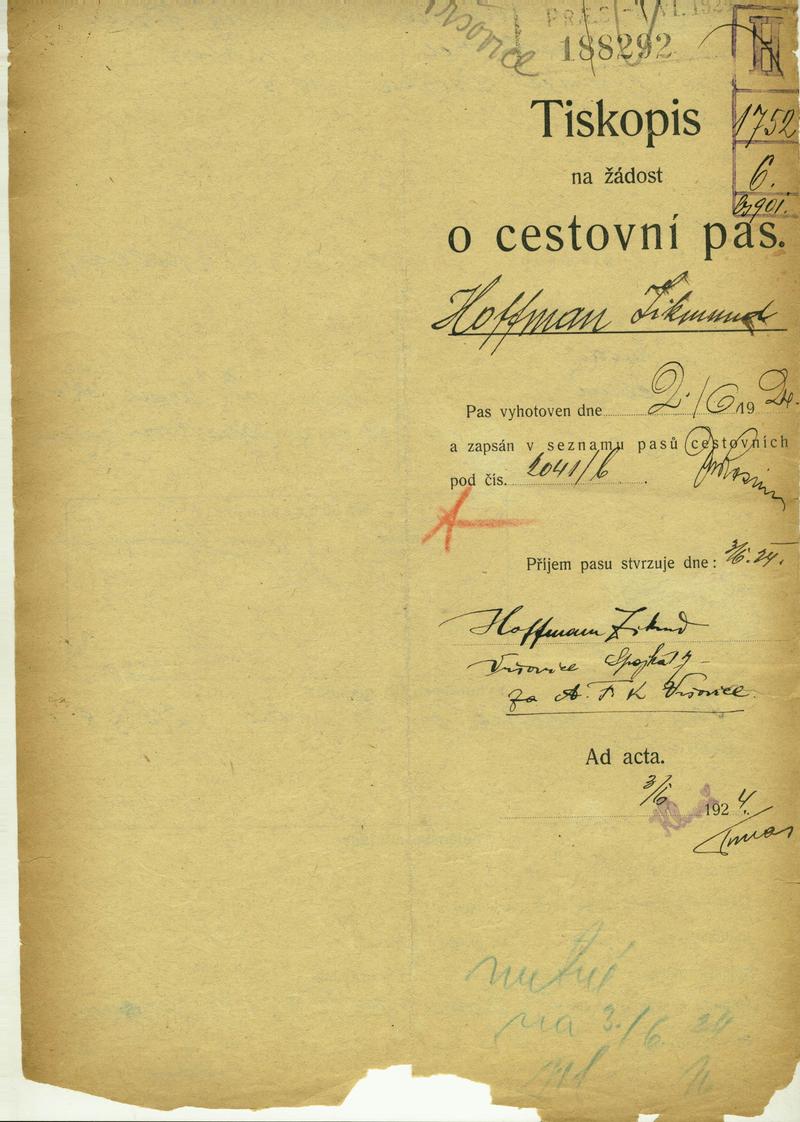 Vršovice
188292
H
1752
6.
Tiskopis
na žádost
o cestovní pas.
Hoffman Zikmund
Pas vyhotoven dne 2./6 19
a zapsán v seznamu pasů cestovních
pod čís. 2041/6
Příjem pasu stvrzuje dne: 3/6. 24.
Hoffmann Zikmd
Vršovice
za A. F K Vršovice.
Ad acta.
3/6 1924.
nutné
na 3./6. 24